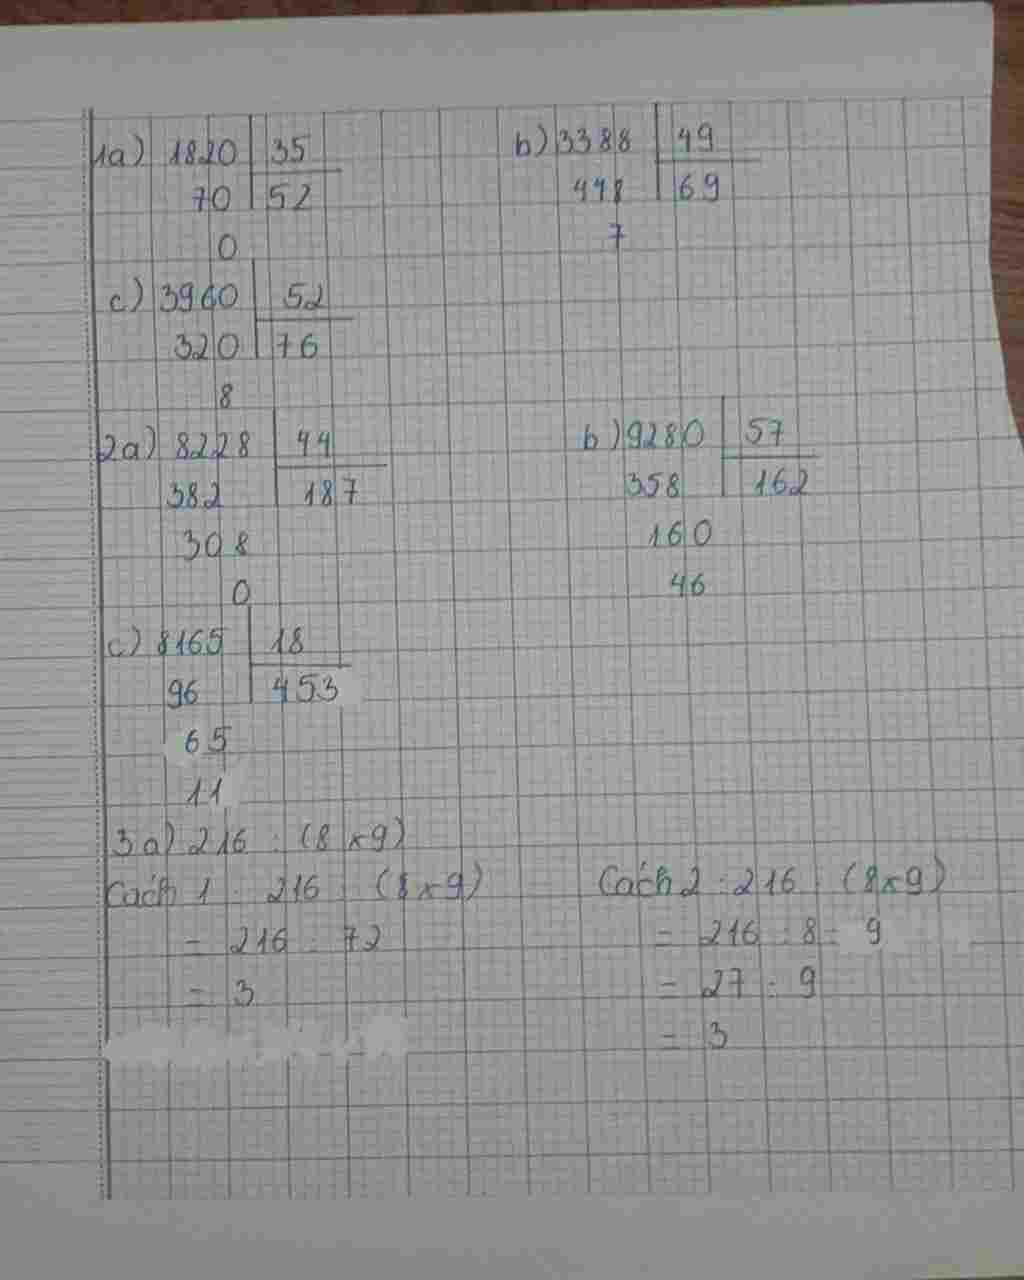 1a) 1820 35
70 52
0
b) 3388 49
448 69
7
c) 3960 52
320 76
8
2a) 8228 44
382 187
308
0
b) 9280 57
358 162
160
46
c) 8165 18
96 453
65
11
3a) 216 : (8 x 9)
Cách 1 : 216 : (8 x 9)
= 216 : 72
= 3
Cách 2 : 216 : (8 x 9)
= 216 : 8 : 9
= 27 : 9
= 3